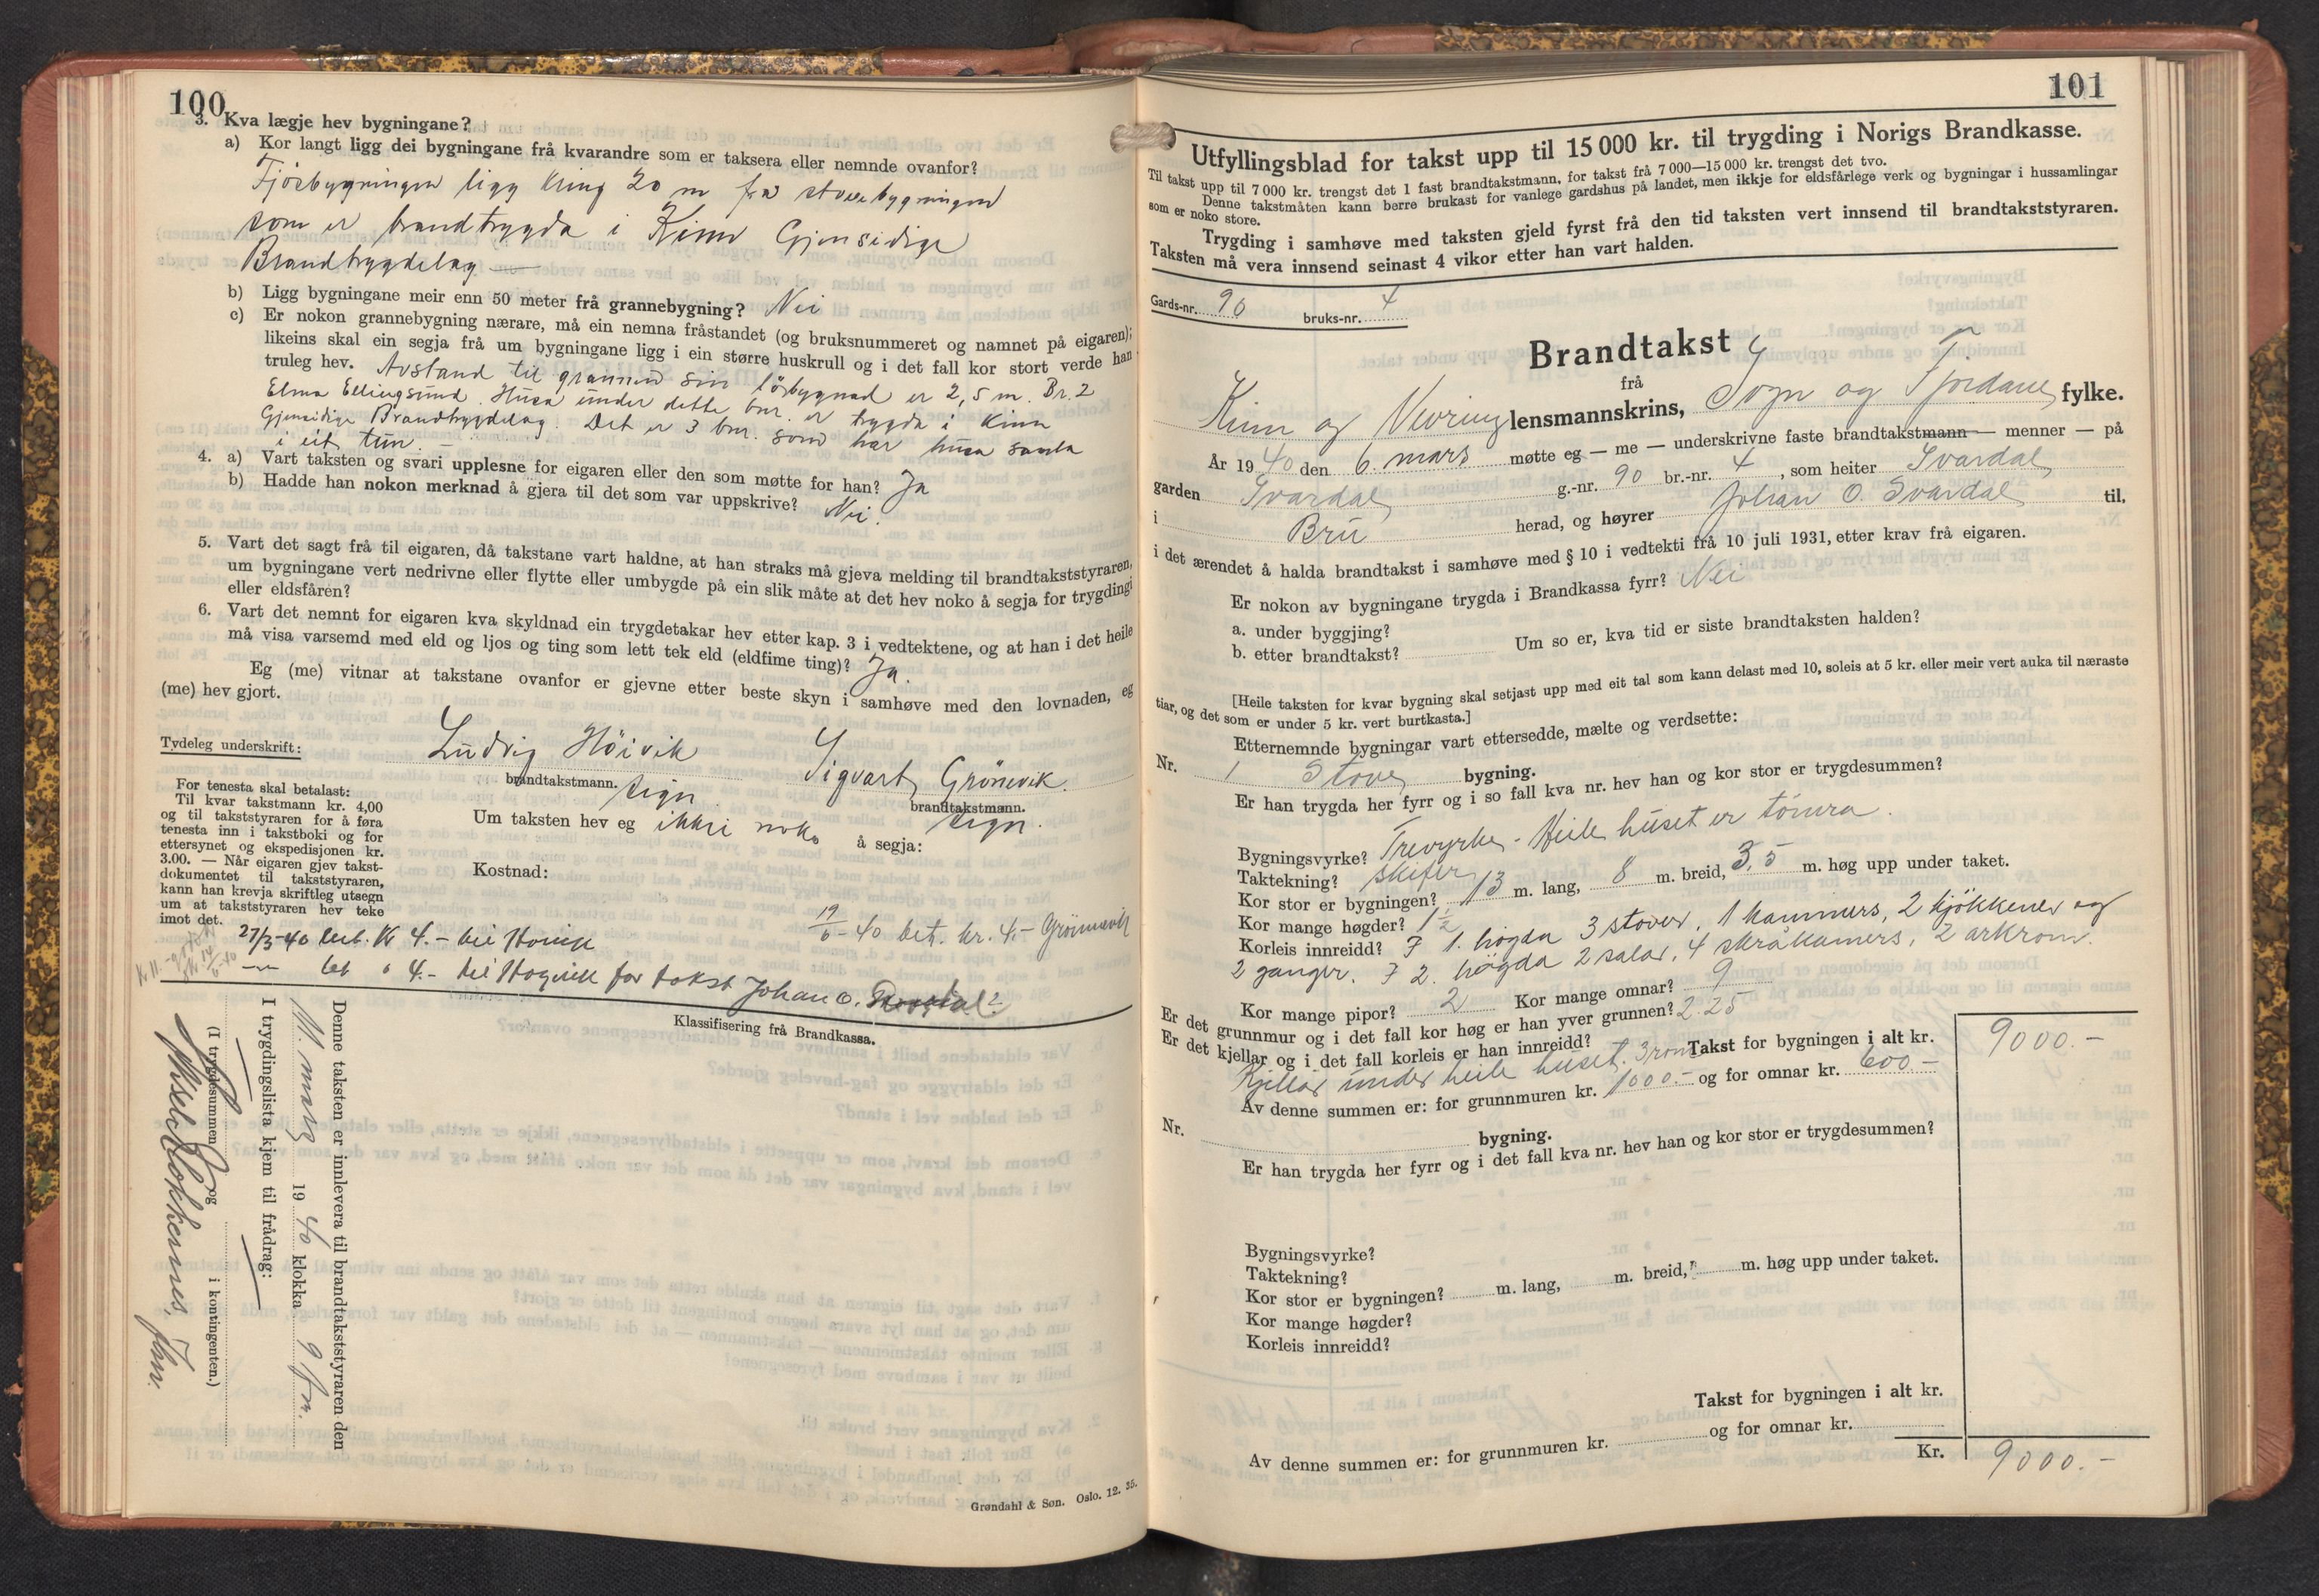 100
3. Kva lægje hev bygningane?
a) Kor langt ligg dei bygningane frå kvarandre som er taksera eller nemnde ovanfor?
Fjösbygningen ligg kring 20 m frå stovebygningen
som er brandtrygda i Kinn Gjensidige
Brandtrygdelag —
b) Ligg bygningane meir enn 50 meter frå grannebygning? Nei
c) Er nokon grannebygning nærare, må ein nemna fråstandet (og bruksnummeret og namnet på eigaren);
likeins skal ein segja frå um bygningane ligg i ein større huskrull og i det fall kor stort verde han
truleg hev. Avstand til grannen sin lösbygnad er 2,5 m. Br. 2
Elma Ellingsund. Husa under dette bnr. er trygda i Kinn
Gjensidige Brandtrygdelag. Det er 3 bnr. som har husa samla
i eit tun —
4. a) Vart taksten og svari upplesne for eigaren eller den som møtte for han? Ja
b) Hadde han nokon merknad å gjera til det som var uppskrive? Nei.
5. Vart det sagt frå til eigaren, då takstane vart haldne, at han straks må gjeva melding til brandtakststyraren,
um bygningane vert nedrivne eller flytte eller umbygde på ein slik måte at det hev noko å segja for trygdingi
eller eldsfåren?
6. Vart det nemnt for eigaren kva skyldnad ein trygdetakar hev etter kap. 3 i vedtektene, og at han i det heile
må visa varsemd med eld og ljos og ting som lett tek eld (eldfime ting)? Ja.
Eg (me) vitnar at takstane ovanfor er gjevne etter beste skyn i samhøve med den lovnaden, eg
(me) hev gjort.
Tydeleg underskrift: Ludvig Höivik Sigvart Grönevik.
brandtakstmann. sign. brandtakstmann. sign.
For tenesta skal betalast:
Til kvar takstmann kr. 4,00
og til takststyraren for å føra
tenesta inn i takstboki og for
ettersynet og ekspedisjonen kr.
3.00. — Når eigaren gjev takst-
dokumentet til takststyraren,
kann han krevja skriftleg utsegn
um at takststyraren hev teke
imot det.
Um taksten hev eg ikkje noko å segja:
Kostnad:
19/6-40 bet. kr. 4.- Grönevik
27/3-40 bet. kr 4.- til Hoivik
—"— bet " 4.- til Hogvik for takst Johan O.
Klassifisering frå Brandkassa.
Denne taksten er innlevera til brandtakststyraren den
11. mars 1940 klokka 9 fm.
I trygdingslista kjem til frådrag:
(I trygdesummen og i kontingenten.)
Grøndahl & Søn. Oslo. 12. 35.
101
Utfyllingsblad for takst upp til 15 000 kr. til trygding i Norigs Brandkasse.
Til takst upp til 7 000 kr. trengst det 1 fast brandtakstmann, for takst frå 7 000—15 000 kr. trengst det tvo.
Denne takstmåten kann berre brukast for vanlege gardshus på landet, men ikkje for eldsfårlege verk og bygningar i hussamlingar
som er noko store.
Trygding i samhøve med taksten gjeld fyrst frå den tid taksten vert innsend til brandtakststyraren.
Taksten må vera innsend seinast 4 vikor etter han vart halden.
Gards-nr. 90 bruks-nr. 4
Brandtakst
frå
Kinn og Nevring lensmannskrins, Sogn og Fjordane fylke.
År 1940 den 6. mars møtte eg — me — underskrivne faste brandtakstmann — menner — på
garden Svardal g.-nr. 90 br.-nr. 4, som heiter Svardal
i Bru herad, og høyrer Johan O. Svardal til,
i det ærendet å halda brandtakst i samhøve med § 10 i vedtekti frå 10 juli 1931, etter krav frå eigaren.
Er nokon av bygningane trygda i Brandkassa fyrr? Nei
a. under byggjing?
b. etter brandtakst? Um so er, kva tid er siste brandtaksten halden?
[Heile taksten for kvar bygning skal setjast upp med eit tal som kann delast med 10, soleis at 5 kr. eller meir vert auka til næraste
tiar, og det som er under 5 kr. vert burtkasta.]
Etternemnde bygningar vart ettersedde, mælte og verdsette:
Nr. 1 Stove bygning.
Er han trygda her fyrr og i so fall kva nr. hev han og kor stor er trygdesummen?
Bygningsvyrke? Trevyrke - Heile huset er tömra.
Taktekning? skifer
Kor stor er bygningen? 13 m. lang, 8 m. breid, 3,5 m. høg upp under taket.
Kor mange høgder? 1 1/2
Korleis innreidd? I 1. högda 3 stover, 1 kammers, 2 kjökkener og
2 ganger. I 2. högda 2 salar, 4 skråkamers, 2 arkrom.
Kor mange pipor? 2 Kor mange omnar? 9
Er det grunnmur og i det fall kor høg er han yver grunnen? 2.25
Er det kjellar og i det fall korleis er han innreidd?
Kjellar under heile huset. 3 rom Takst for bygningen i alt kr. 9000.-
Av denne summen er: for grunnmuren kr. 1000.- og for omnar kr. 600.-
Nr. bygning.
Er han trygda her fyrr og i det fall kva nr. hev han og kor stor er trygdesummen?
Bygningsvyrke?
Taktekning?
Kor stor er bygningen? m. lang, m. breid, m. høg upp under taket.
Kor mange høgder?
Korleis innreidd?
Takst for bygningen i alt kr.
Av denne summen er: for grunnmuren kr. og for omnar kr.
Kr. 9000.-